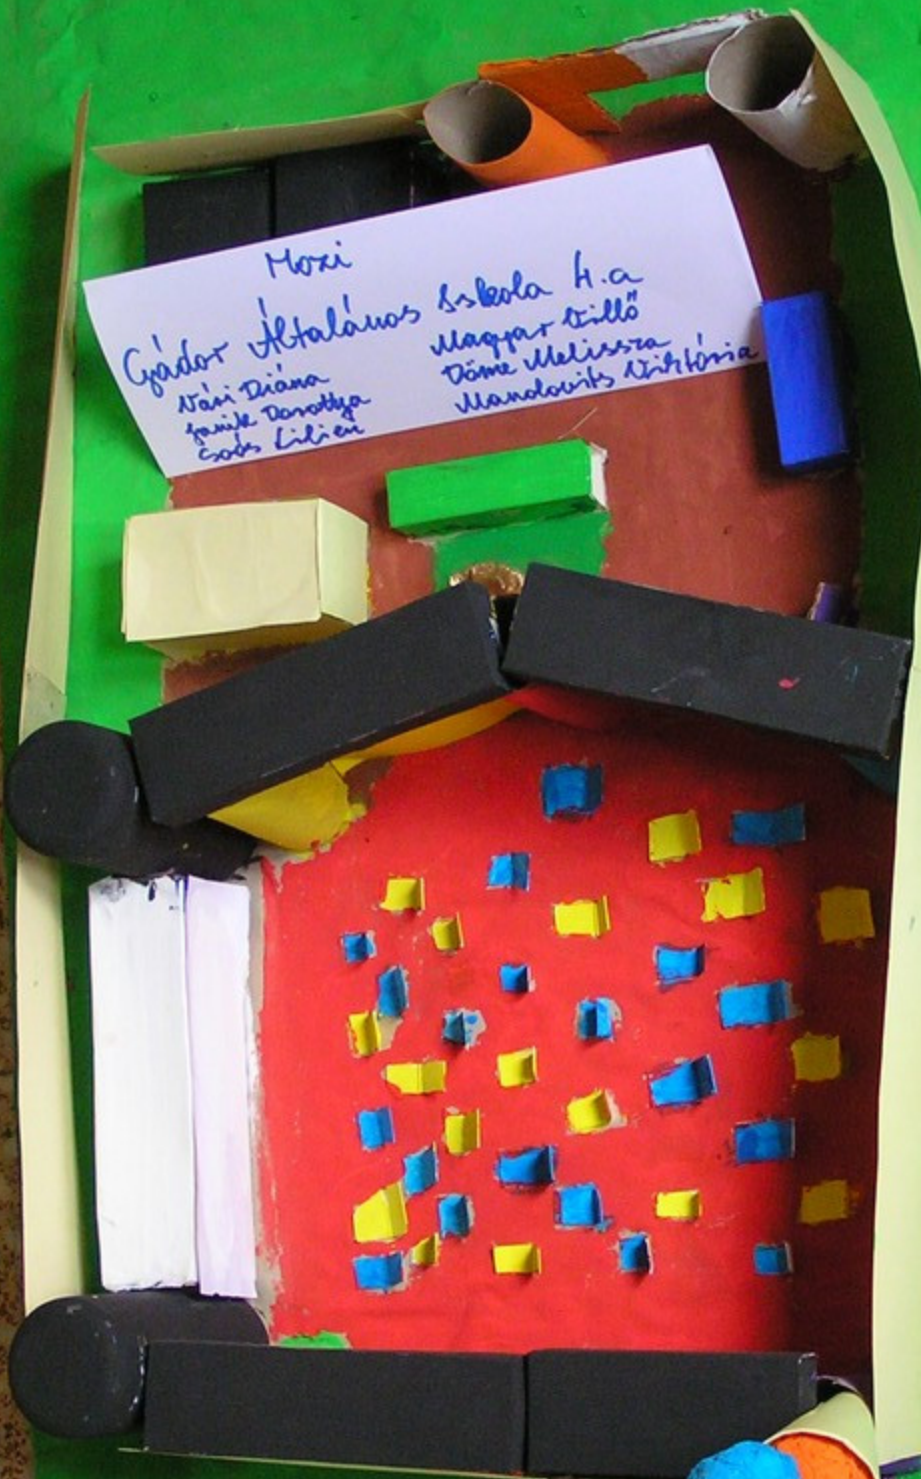 Mozi
Gádor Általános Iskola 4.a
Vári Diána
Janik Dorottya
Soós Lilien
Magyar Lilló
Döme Melissza
Mandovits Viktória